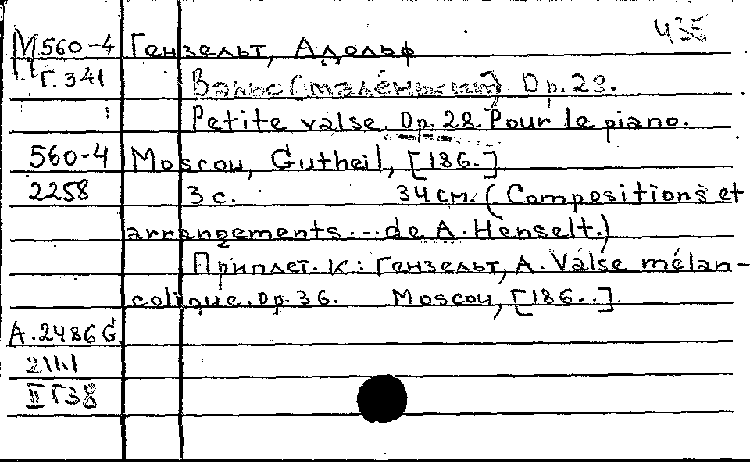 М560-4 Гензельт, Адольф
Г.341 Вальс (маленький) Op. 28.
Petite valse. Op. 28. Pour le piano.
560-4 Moscou, Gutheil, [186.]
2258 3 с. 34 см. (Compositions et
arrangements... de A. Henselt.)
Приплет. к: Гензельт, А. Valse mélan-
colique. Op. 36. Moscou, [186..]
А.2486 G
II Г38